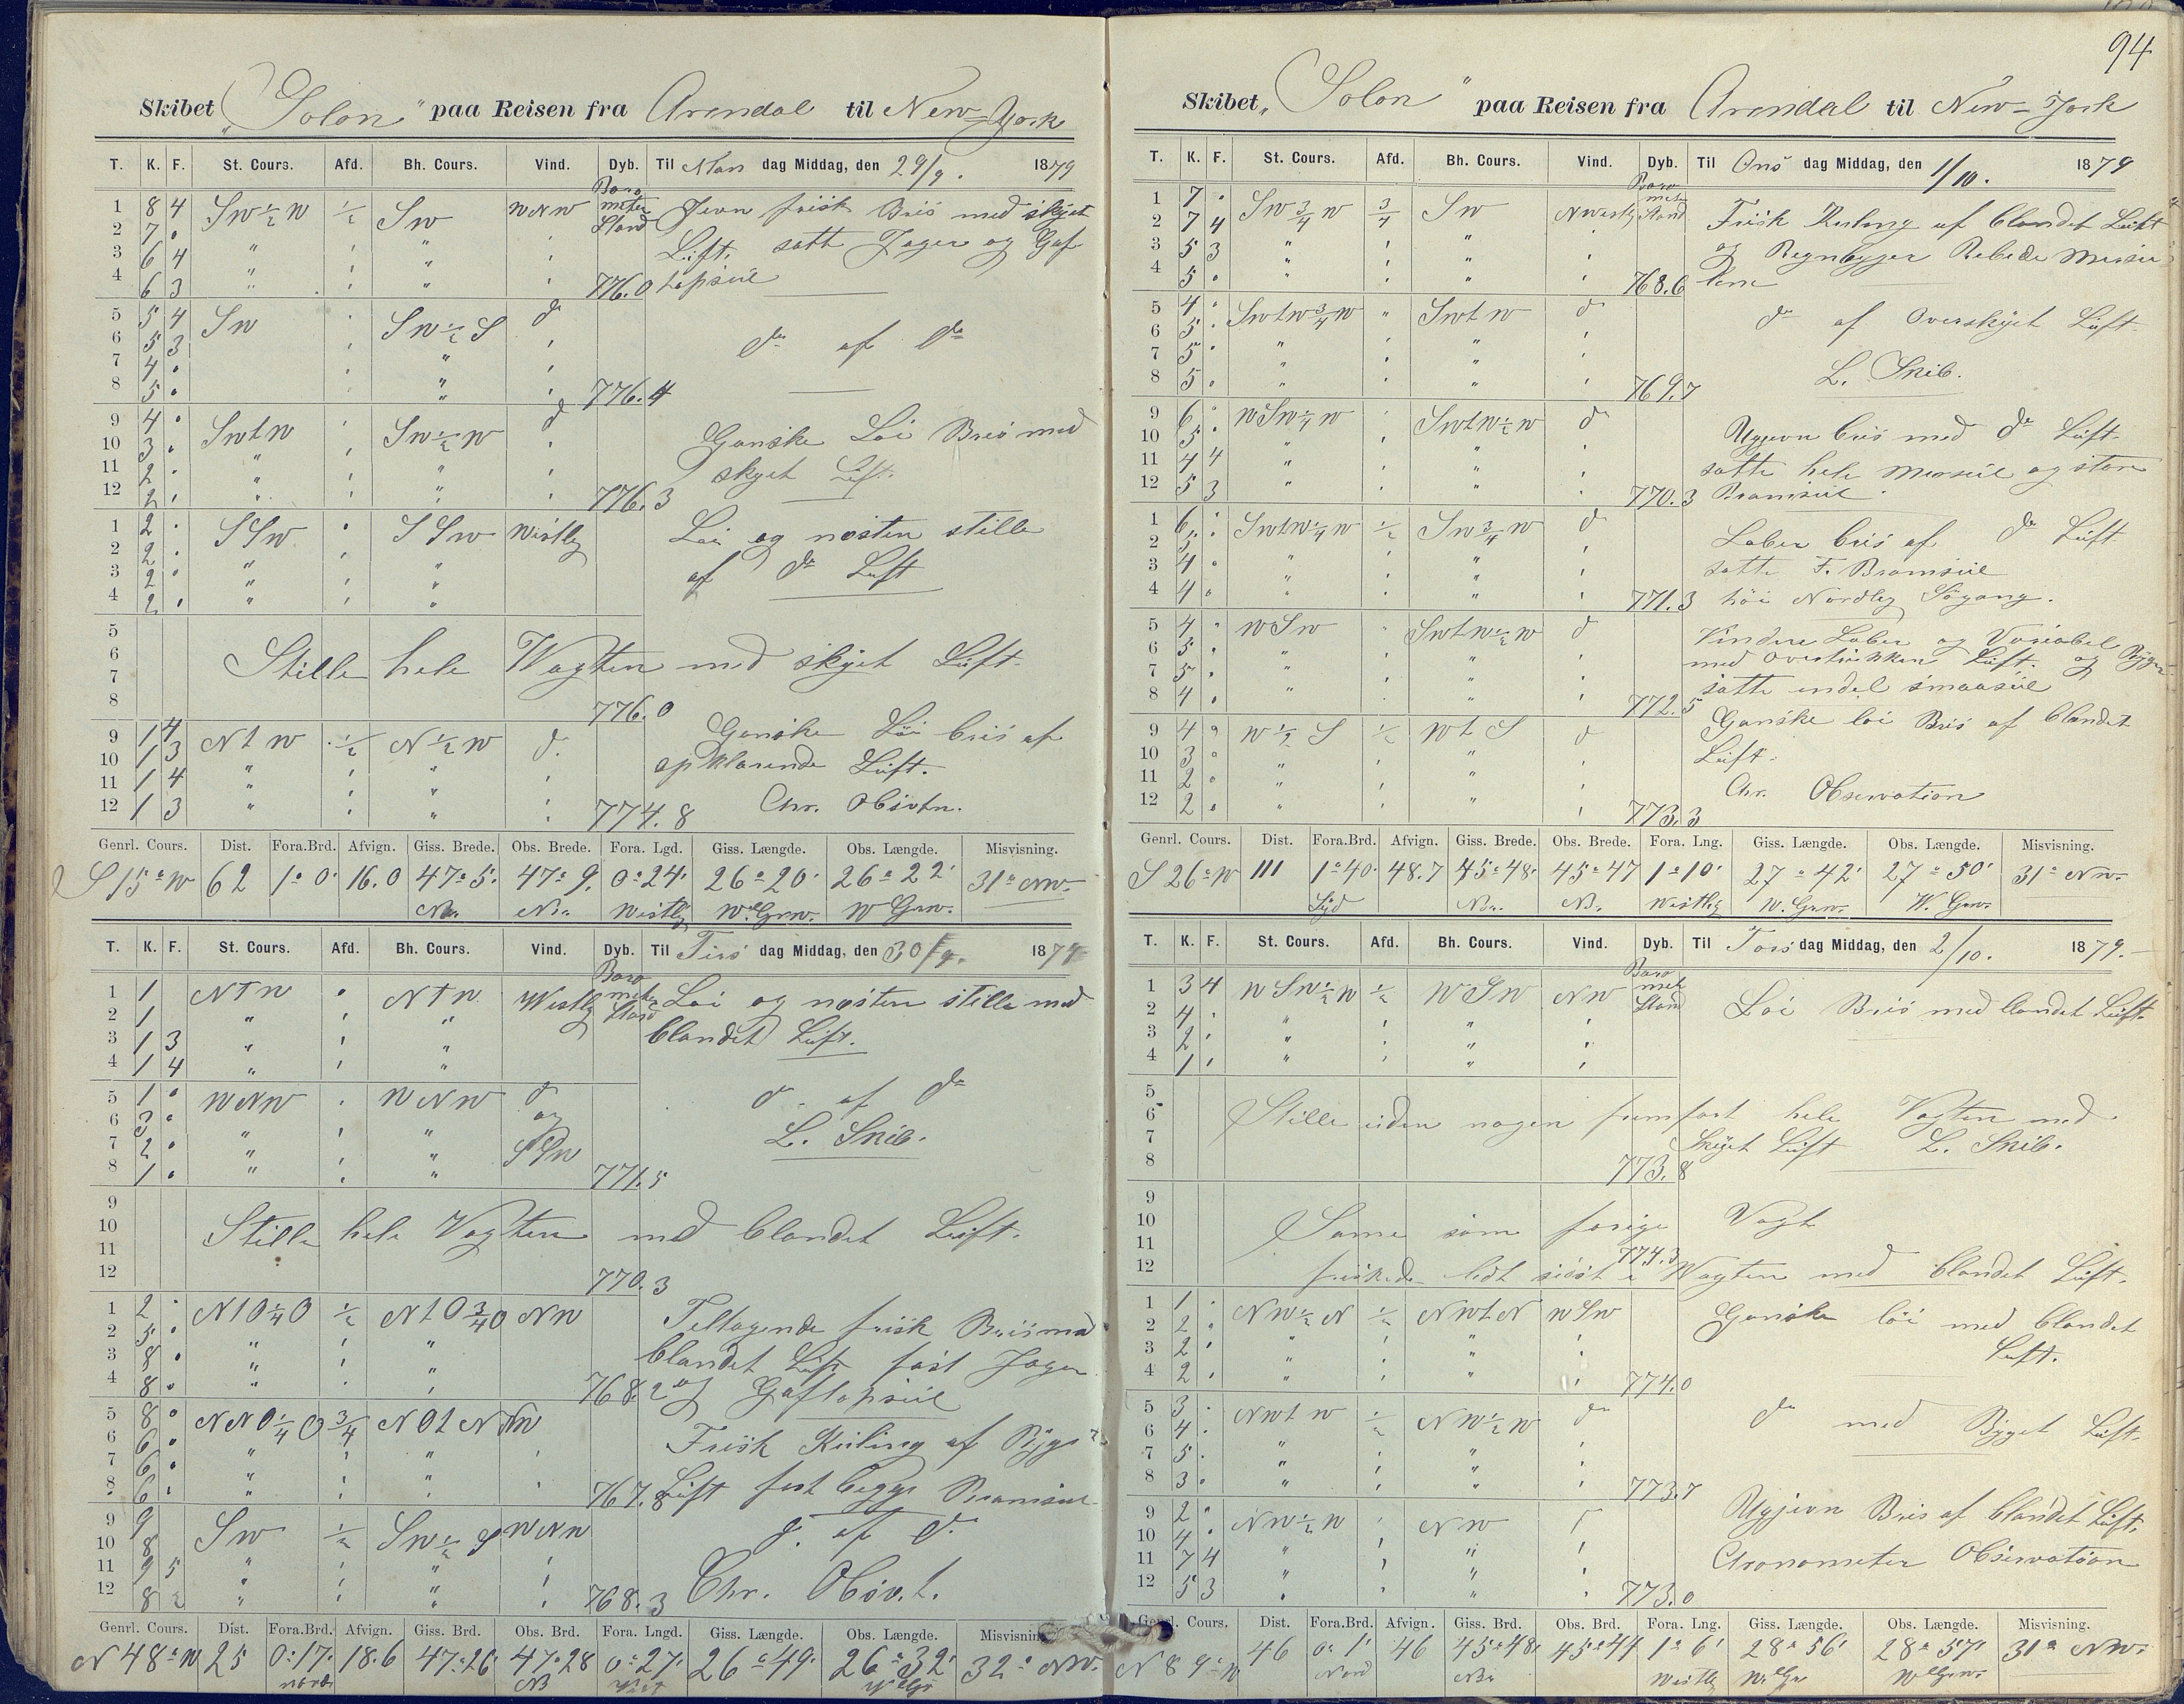 Skibet „Solon" paa Reisen fra Arendal til New-York
T. K. F. St. Cours. Afd. Bh. Cours. Vind. Dyb. Til Man dag Middag, den 29/9. 1879
Barometer Stand
1 8 4 Sw ½ W ½ Sw WNW Jevn frisk Bris med skyet
2 7 " " " " Luft. satt Jager og Gaf
3 6 4 " " " "
4 6 3 " " " " 776.0 topseil
5 5 4 Sw " Sw ½ S do
6 5 3 " " " do af do
7 4 " " " "
8 5 " " " " 776.4
9 4 " Swtw " Sw ½ W do Ganske Löi Bris med
10 3 " " " " "
11 2 " " " " " skyet Luft.
12 2 " " " " " 776.3
1 2 " SSw " SSw Westlig Löi og næsten stille
2 2 " " " "
3 2 " " " " af do Luft
4 2 " " " "
5
6 Stille hele Wagten med skyet Luft
7
8 776.0
9 1 4 Ntw ½ N ½ W do Ganske Löi bris af
10 1 3 " " " " opklarende Luft.
11 1 4 " " " "
12 1 3 " " " " 774.8 Chr. Obsvtn.
Genrl. Cours. Dist. Fora.Brd. Afvign. Giss. Brede. Obs. Brede. Fora. Lgd. Giss. Længde. Obs. Længde. Misvisning.
S 15° W 62 1° 0' 16.0 47° 5' 47° 9' 0° 24' 26° 20' 26° 22' 31° NW.
Nr. Nr. Westlig W. Grw. W Grw.
T. K. F. St. Cours. Afd. Bh. Cours. Vind. Dyb. Til Tirs dag Middag, den 30/9. 1879
Barometer Stand
1 1 Ntw " Ntw Westlig Löi og næsten stille med
2 1 " " "
3 1 3 " " " blandet Luft.
4 1 4 " " "
5 1 " WNW " WNW do do af do
6 3 " " " " og
7 2 " " " " SSw L. Skib.
8 1 " " " " 771.5
9
10 Stille hele Vagten med blandet Luft.
11
12 770.3
1 2 " NtO ¼ O ½ NtO ¾ O NW Tiltagende frisk Bris med
2 5 " " " "
3 8 " " " " blandet Luft fast Jager
4 8 " " " " 768.2 og Gaftopseil
5 8 " NNO ¼ O ¾ NOtN NW
6 6 " " " " " Frisk Kuling af Byge
7 6 " " " " "
8 6 " " " " " 767.8 Luft fast begge Bramseil
9 9 Sw ½ Sw ½ S WNW do af do
10 8 " " " "
11 9 5 " " " "
12 8 2 " " " " 768.3 Chr. Obsv.t.
Genrl. Cours. Dist. Fora.Brd. Afvign. Giss. Brd. Obs. Brd. Fora. Lngd. Giss. Længde. Obs. Længde. Misvisning.
N 48° W 25 0° 17' 18.6 47° 26' 47° 28 0° 27' 26° 49' 26° 32' 32° NW.
94
Skibet „Solon" paa Reisen fra Arendal til New-York
T. K. F. St. Cours. Afd. Bh. Cours. Vind. Dyb. Til Ons dag Middag, den 1/10. 1879
Barometer Stand
1 7 " Sw ¾ W ¾ Sw NWestlig Frisk Kuling af blandet Luft
2 7 4 " " " "
3 5 3 " " " " og Regnbyger Rebede Mersei
4 5 " " " " " 768.6 lene
5 4 " Swtw ¾ W " Swtw do do af Overskyet Luft
6 5 " " " " "
7 5 " " " " " L. Skib.
8 5 " " " " " 769.7
9 6 " WSw ¼ W " Swtw ½ W do Ugjevn bris med do Luft
10 5 " " " " "
11 4 4 " " " " satte hele Merseil og store
12 5 3 " " " " 770.3 Bramseil.
1 6 " Swtw ¼ W ½ Sw ¾ W do Laber bris af do Luft
2 5 " " " " "
3 4 " " " " " satte F. Bramseil
4 4 " " " " " 771.3 höi Nordlig Sögang.
5 4 " WSw " Swtw ½ W do Vinden Laber og Variabel
6 5 " " " " " med overtrukken Luft og Byger
7 5 " " " " "
8 4 " " " " " 772.5 satte endel smaaseil
9 4 " W ½ S ½ WtS do Ganske löi Bris af blandet
10 3 " " " " " Luft.
11 2 " " " " "
12 2 " " " " " 773.3 Chr. Observation
Genrl. Cours. Dist. Fora.Brd. Afvign. Giss. Brede. Obs. Brede. Fora. Lng. Giss. Længde. Obs. Længde. Misvisning.
S 26° W 111 1° 40' 48.7 45° 48' 45° 47 1° 10' 27° 42' 27° 50' 31° NW.
Syd Nr. Nr. Westlig W. Grw. W. Grw.
T. K. F. St. Cours. Afd. Bh. Cours. Vind. Dyb. Til Tors dag Middag, den 2/10. 1879.
Barometer Stand
1 3 4 WSw ½ W ½ WSW NW Löi Bris med blandet Luft.
2 4 " " " " "
3 2 " " " " "
4 1 " " " " "
5
6 Stille uden nogen fremfart hele Vagten med
7 Skyet Luft L. Skib.
8 773.8
9
10 Same som forige Vagt
11 774.3
12 friskede lidt sidst i Wagten med blandet Luft.
1 1 " NW ½ N ½ NWtN WSw Ganske löi med blandet
2 2 " " " " "
3 2 " " " " " Luft.
4 2 " " " " " 774.0
5 3 " NWtW ½ NW ½ W do do med Byget Luft
6 4 " " " " "
7 5 " " " " "
8 3 " " " " " 773.7
9 2 " NW ½ W " NW Ugjevn Bris af blandet Luft.
10 4 " " " " "
11 7 4 " " " " Chronometer Observation
12 5 3 " " " " 773.0
Genrl. Cours. Dist. Fora.Brd. Afvign. Giss. Brd. Obs. Brd. Fora. Lng. Giss. Længde. Obs. Længde. Misvisning.
N 89° W 46 0° 1' 46 45° 48' 45° 44 1° 6' 28° 56' 28° 57' 31° NW.
Nord Nr. Westlig W. Gr W Grw.